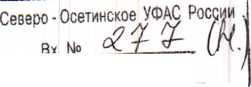 Северо - Осетинское УФАС России
Вх № 277 (н.)